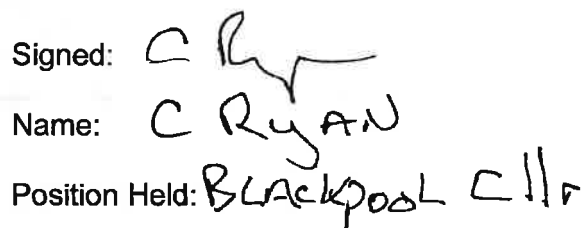 Signed: C Ry
Name: C RyAN
Position Held: BLAckpooL Cllr